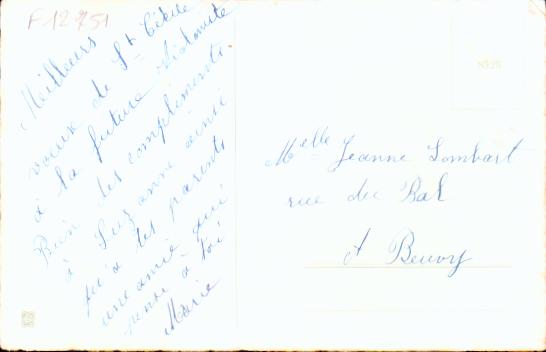 F12751
Meilleurs
voeux de Ste Cécile
à la future violoniste
Bien des compliments
à Suzanne ainsi
qu'a tes parents
une amie qui
pense à toi
Marie
Melle Jeanne Lombart
rue du Bal
A Beuvry